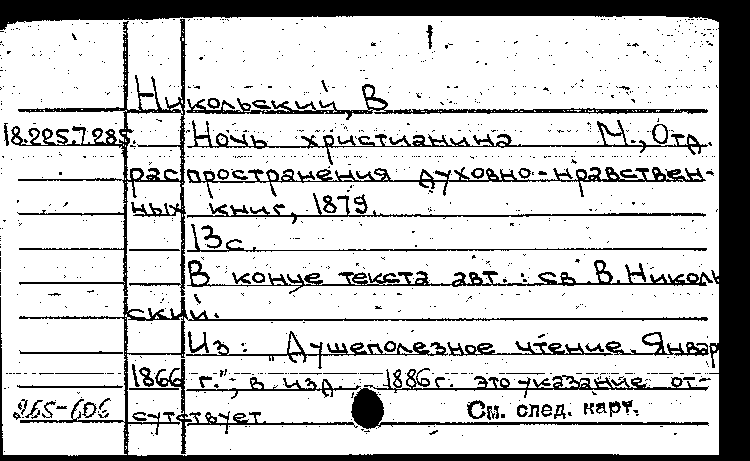 1
Никольский, В
18.225.7.285. Ночь христианина М., Отд.
распространения духовно-нравствен-
ных книг, 1879.
13с.
В конце текста авт.: св В. Николь
ский.
Из: "Душеполезное чтение. Январ
1866 г."; в изд. 1886г. это указание от-
265-606 сутствует.
См. след. карт.